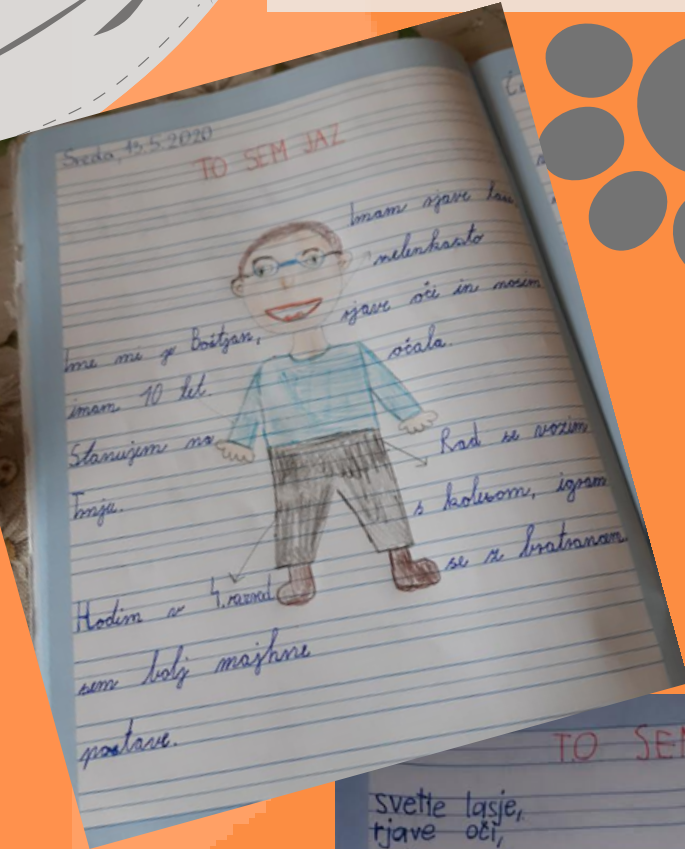 Sreda, 13.5.2020
TO SEM JAZ
Imam rjave
rjave oči in nosim
očala.
Ime mi je Boštjan,
imam 10 let.
Stanujem na
Trnju.
Rad se vozim
s kolesom, igram
se z bratrancem.
Hodim v 4. razred
sem bolj majhne
postave.
TO SE
svetle lasje,
rjave oči,